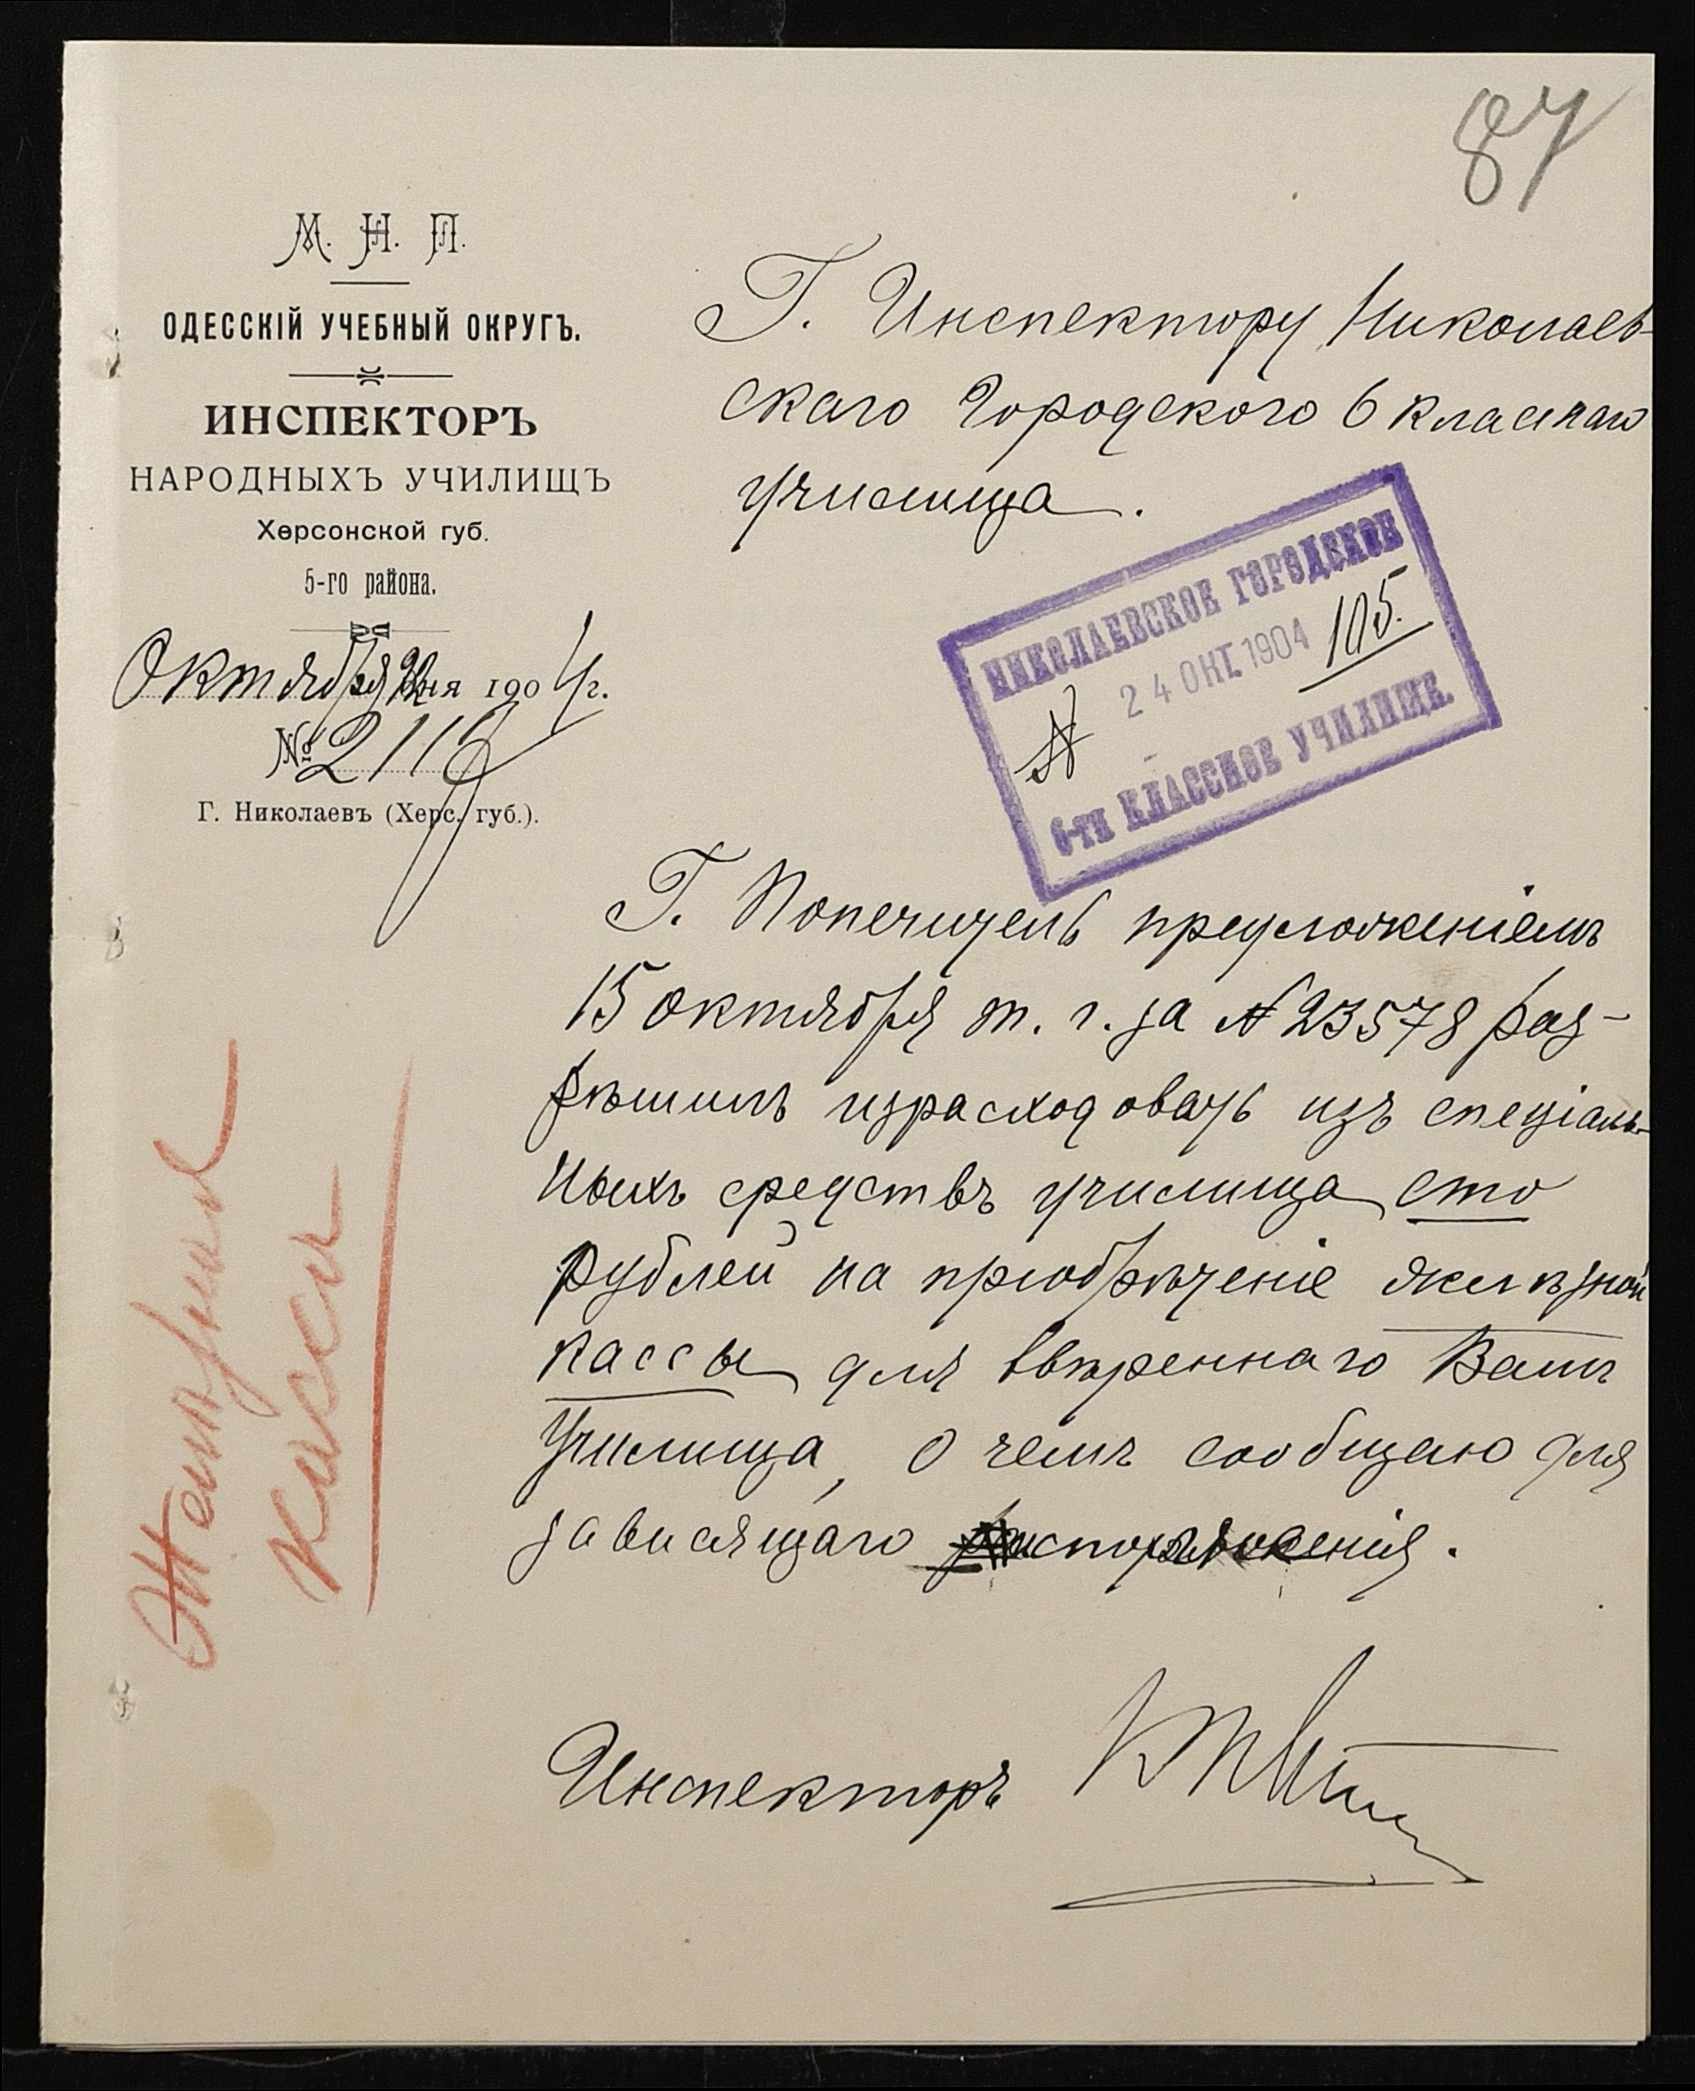 87
М. Н. П.
ОДЕССКІЙ УЧЕБНЫЙ ОКРУГЪ.
ИНСПЕКТОРЪ
НАРОДНЫХЪ УЧИЛИЩЪ
Херсонской губ.
5-го района.
Октября 22 дня 1904 г.
№ 2116
Г. Николаевъ (Херс. губ.).
Г. Инспектору Николаев-
скаго Городского 6 класснаго
училища.
НИКОЛАЕВСКОЕ ГОРОДСКОЕ
24 ОКТ. 1904
N 105.
6-ТИ КЛАССНОЕ УЧИЛИЩЕ.
Г. Попечитель предложеніемъ
15 октября т. г. за N 23578 раз-
рѣшилъ израсходовать изъ спеціаль-
ныхъ средствъ училища сто
рублей на пріобрѣтеніе желѣзной
кассы для ввѣреннаго Вамъ
училища, о чемъ сообщаю для
зависящаго распоряженія.
Желѣзная
касса
Инспекторъ